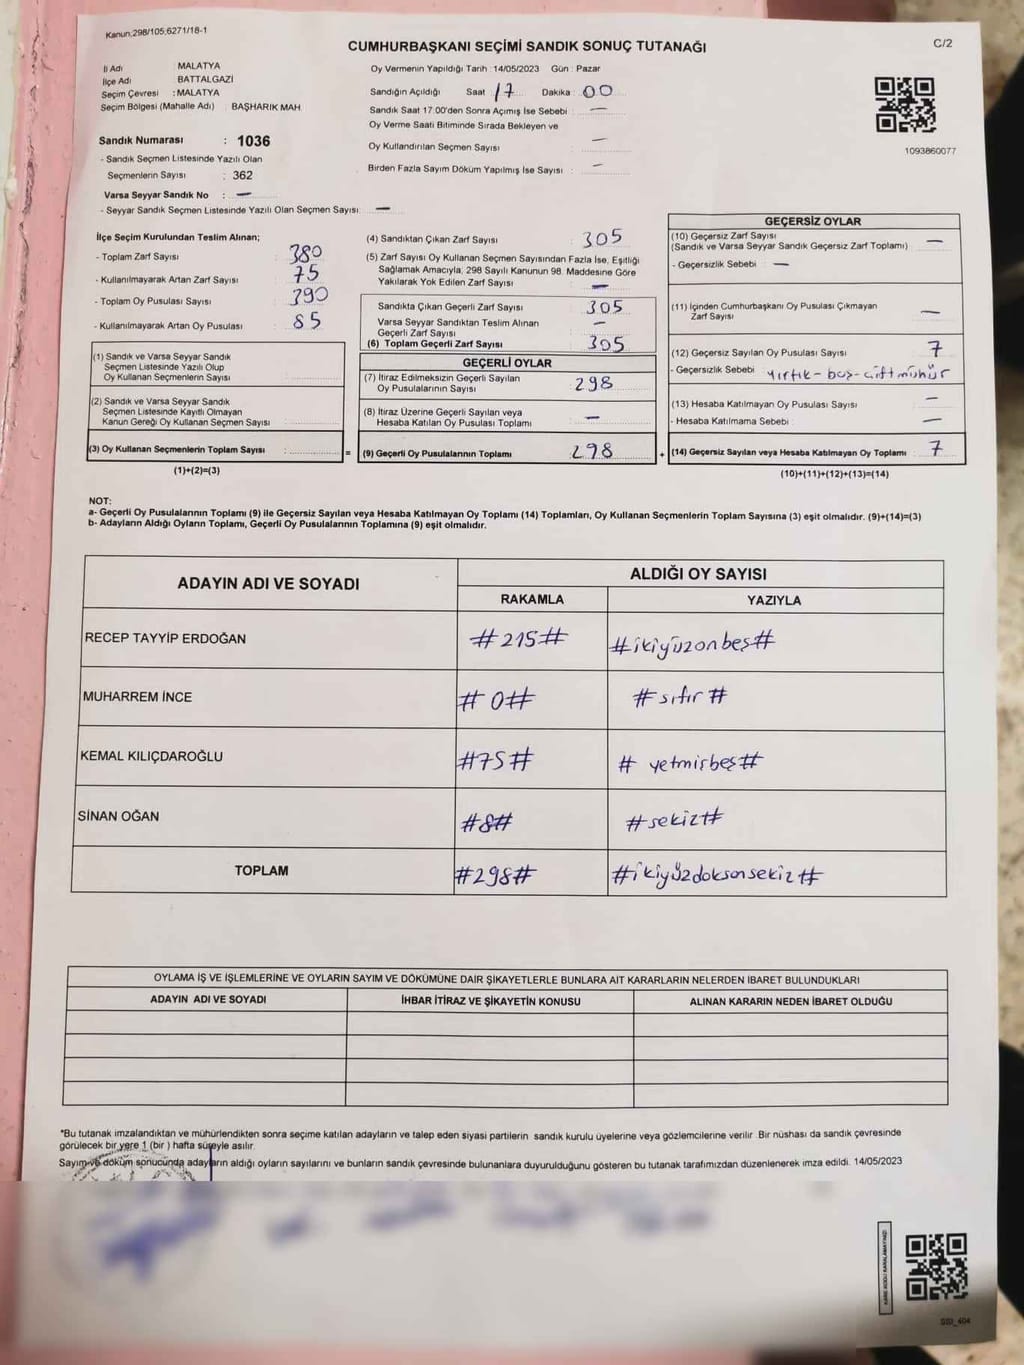 Kanun.298/105;6271/18-1
C/2
CUMHURBAŞKANI SEÇİMİ SANDIK SONUÇ TUTANAĞI
İl Adı : MALATYA
İlçe Adı : BATTALGAZİ
Seçim Çevresi : MALATYA
Seçim Bölgesi (Mahalle Adı) : BAŞHARIK MAH.
Sandık Numarası : 1036
- Sandık Seçmen Listesinde Yazılı Olan
Seçmenlerin Sayısı : 362
Varsa Seyyar Sandık No : —
- Seyyar Sandık Seçmen Listesinde Yazılı Olan Seçmen Sayısı: —
Oy Vermenin Yapıldığı Tarih :14/05/2023 Gün : Pazar
Sandığın Açıldığı Saat 17 Dakika : 00
Sandık Saat 17.00'den Sonra Açımış İse Sebebi : —
Oy Verme Saati Bitiminde Sırada Bekleyen ve
Oy Kullandırılan Seçmen Sayısı —
Birden Fazla Sayım Döküm Yapılmış İse Sayısı : —
1093860077
İlçe Seçim Kurulundan Teslim Alınan;
- Toplam Zarf Sayısı : 380
- Kullanılmayarak Artan Zarf Sayısı : 75
- Toplam Oy Pusulası Sayısı : 390
- Kullanılmayarak Artan Oy Pusulası : 85
(1) Sandık ve Varsa Seyyar Sandık
Seçmen Listesinde Yazılı Olup
Oy Kullanan Seçmenlerin Sayısı :
(2) Sandık ve Varsa Seyyar Sandık
Seçmen Listesinde Kayıtlı Olmayan
Kanun Gereği Oy Kullanan Seçmen Sayısı :
(3) Oy Kullanan Seçmenlerin Toplam Sayısı : =
(1)+(2)=(3)
(4) Sandıktan Çıkan Zarf Sayısı : 305
(5) Zarf Sayısı Oy Kullanan Seçmen Sayısından Fazla İse, Eşitliği
Sağlamak Amacıyla, 298 Sayılı Kanunun 98. Maddesine Göre
Yakılarak Yok Edilen Zarf Sayısı : —
Sandıkta Çıkan Geçerli Zarf Sayısı : 305
Varsa Seyyar Sandıktan Teslim Alınan
Geçerli Zarf Sayısı : —
(6) Toplam Geçerli Zarf Sayısı : 305
GEÇERLİ OYLAR
(7) İtiraz Edilmeksizin Geçerli Sayılan
Oy Pusulalarının Sayısı : 298
(8) İtiraz Üzerine Geçerli Sayılan veya
Hesaba Katılan Oy Pusulası Toplamı : —
(9) Geçerli Oy Pusulalarının Toplamı : 298 +
GEÇERSİZ OYLAR
(10) Geçersiz Zarf Sayısı
(Sandık ve Varsa Seyyar Sandık Geçersiz Zarf Toplamı) : —
- Geçersizlik Sebebi : —
(11) İçinden Cumhurbaşkanı Oy Pusulası Çıkmayan
Zarf Sayısı : —
(12) Geçersiz Sayılan Oy Pusulası Sayısı : 7
- Geçersizlik Sebebi : yırtık-boş-çift mühür
(13) Hesaba Katılmayan Oy Pusulası Sayısı : —
- Hesaba Katılmama Sebebi : —
(14) Geçersiz Sayılan veya Hesaba Katılmayan Oy Toplamı : 7
(10)+(11)+(12)+(13)=(14)
NOT:
a- Geçerli Oy Pusulalarının Toplamı (9) ile Geçersiz Sayılan veya Hesaba Katılmayan Oy Toplamı (14) Toplamları, Oy Kullanan Seçmenlerin Toplam Sayısına (3) eşit olmalıdır. (9)+(14)=(3)
b- Adayların Aldığı Oyların Toplamı, Geçerli Oy Pusulalarının Toplamına (9) eşit olmalıdır.
ADAYIN ADI VE SOYADI
ALDIĞI OY SAYISI
RAKAMLA YAZIYLA
RECEP TAYYİP ERDOĞAN #215# #ikiyüzonbeş#
MUHARREM İNCE #0# #sıfır#
KEMAL KILIÇDAROĞLU #75# #yetmişbeş#
SİNAN OĞAN #8# #sekiz#
TOPLAM #298# #ikiyüzdoksansekiz#
OYLAMA İŞ VE İŞLEMLERİNE VE OYLARIN SAYIM VE DÖKÜMÜNE DAİR ŞİKAYETLERLE BUNLARA AİT KARARLARIN NELERDEN İBARET BULUNDUKLARI
ADAYIN ADI VE SOYADI İHBAR İTİRAZ VE ŞİKAYETİN KONUSU ALINAN KARARIN NEDEN İBARET OLDUĞU
*Bu tutanak imzalandıktan ve mühürlendikten sonra seçime katılan adayların ve talep eden siyasi partilerin sandık kurulu üyelerine veya gözlemcilerine verilir. Bir nüshası da sandık çevresinde
görülecek bir yere 1 (bir ) hafta süreyle asılır.
Sayım ve döküm sonucunda adayların aldığı oyların sayılarını ve bunların sandık çevresinde bulunanlara duyurulduğunu gösteren bu tutanak tarafımızdan düzenlenerek imza edildi. 14/05/2023
KARE KODU KARALAMAYINIZ!